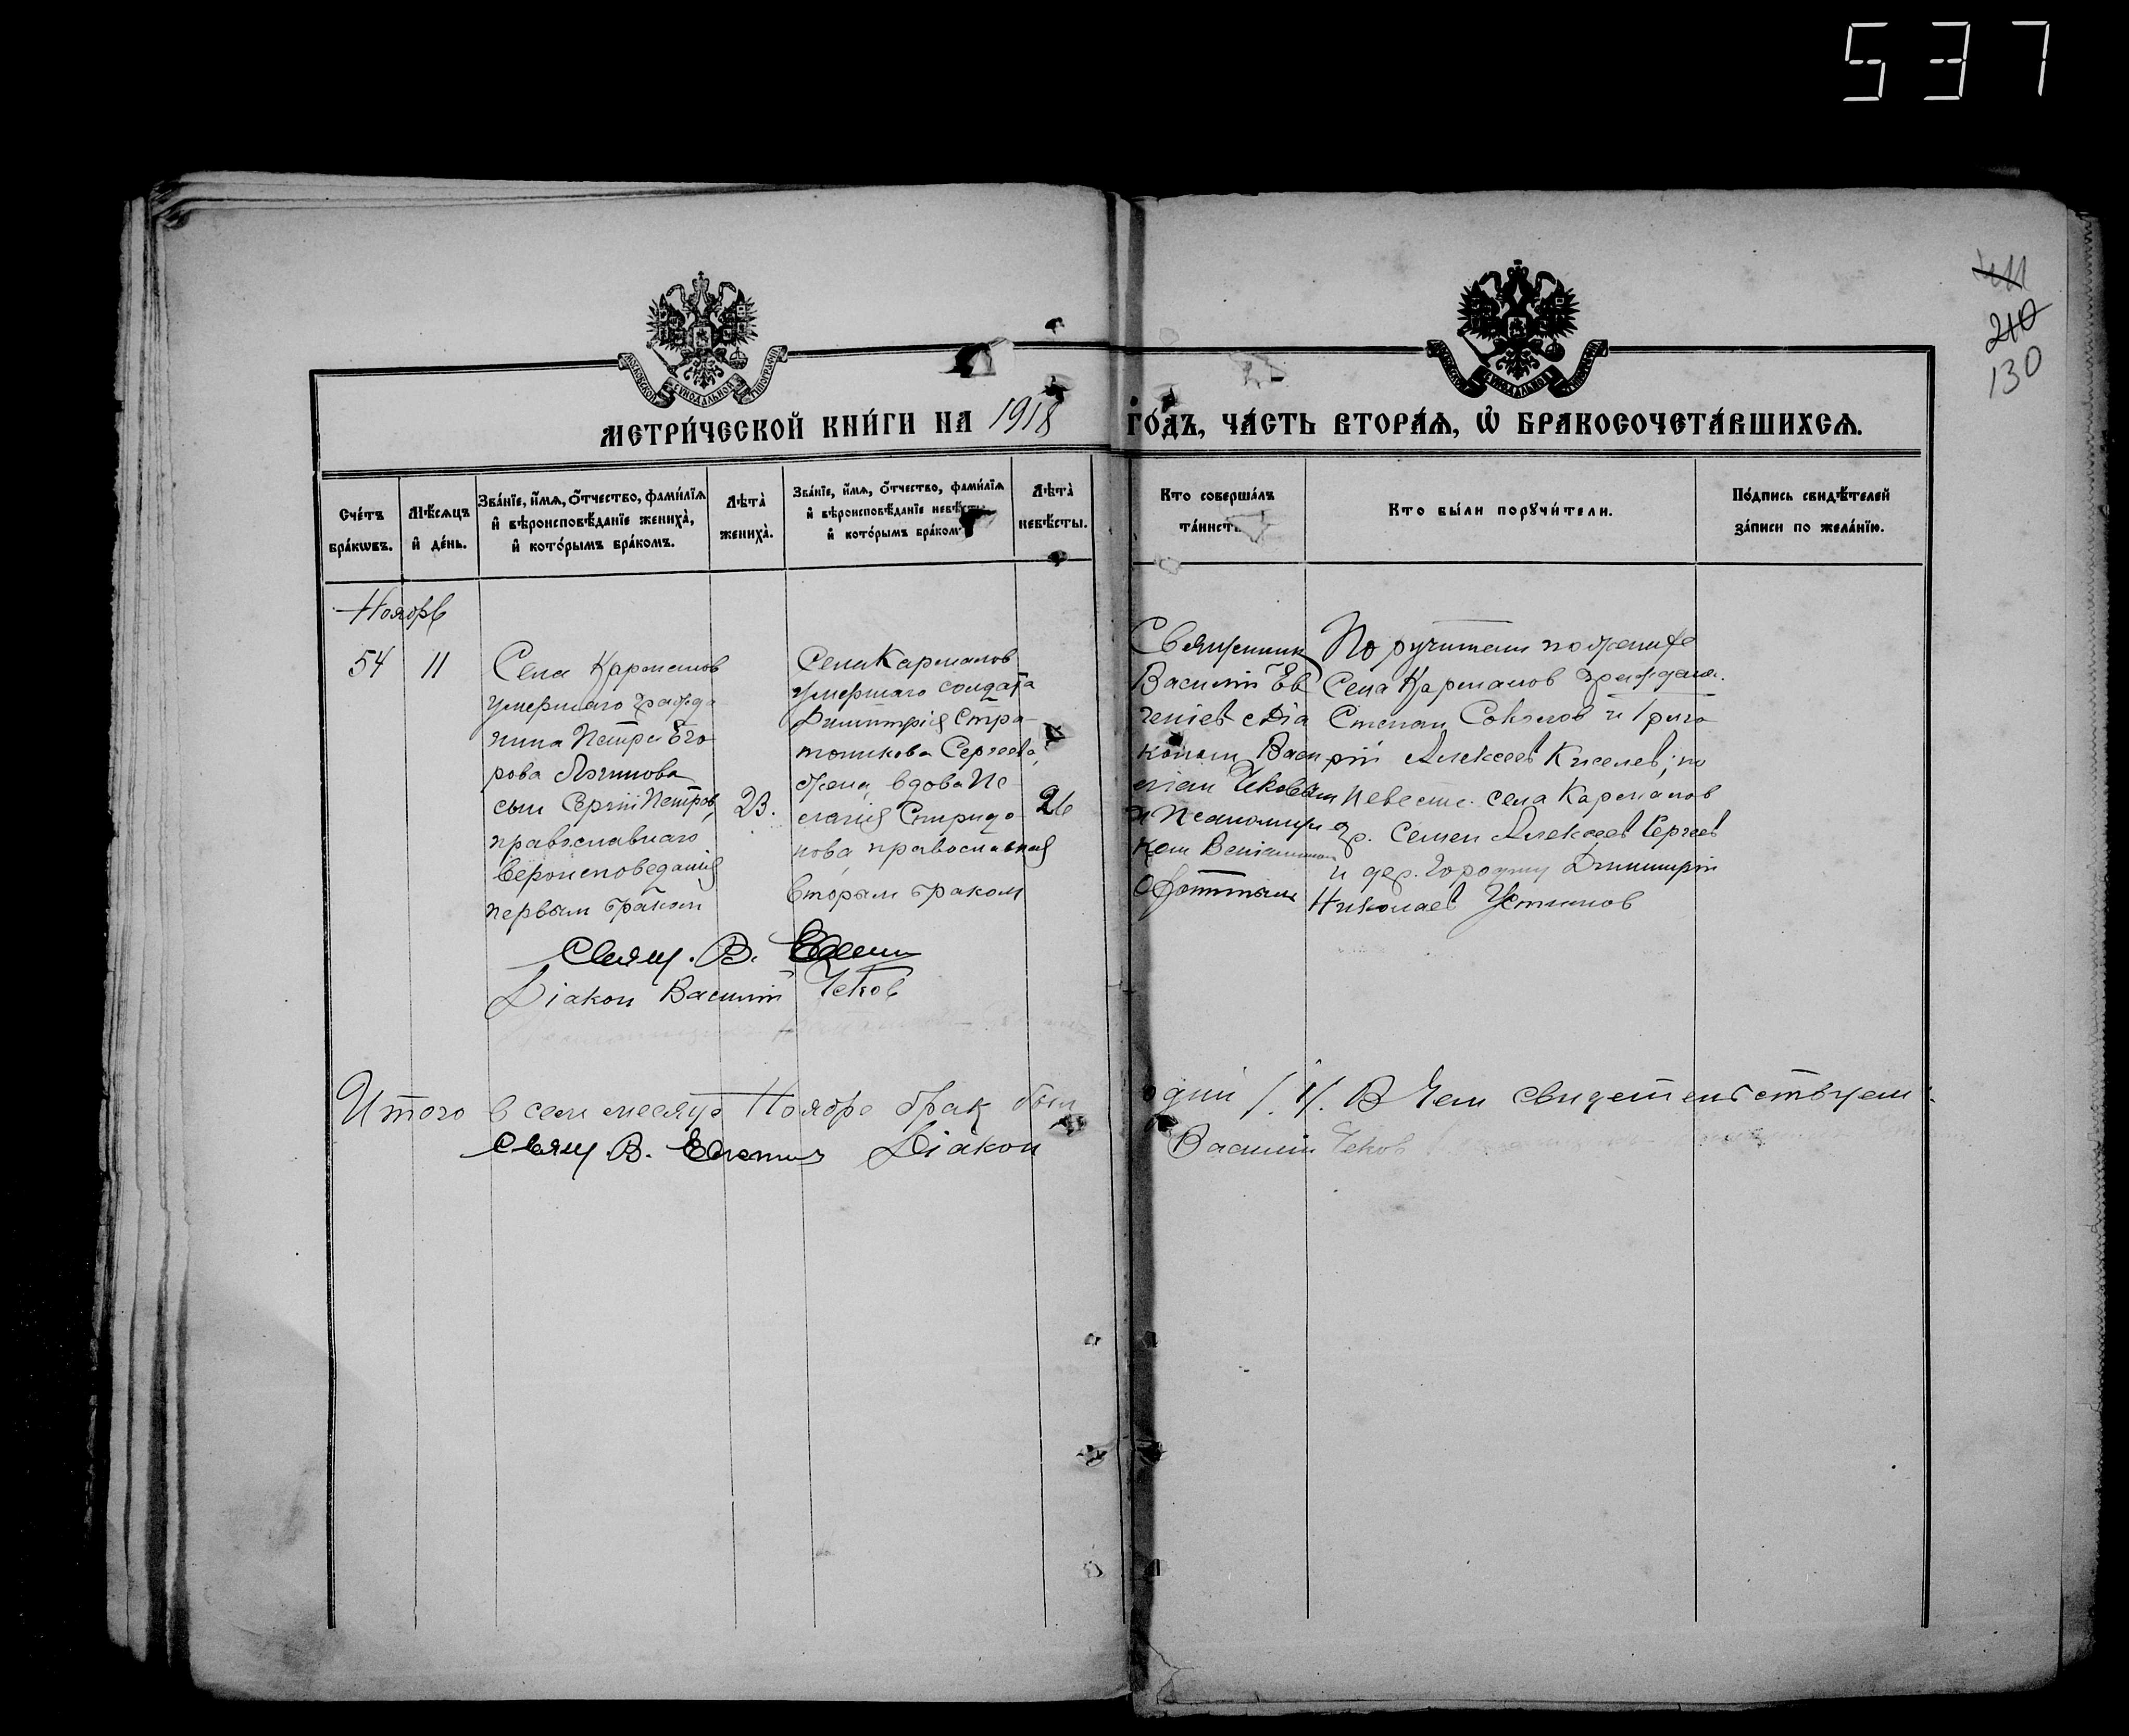 537
411
210
130
МОСКОВСКОЙ СѴНОДАЛЬНОЙ ТИПОГРАФІИ
МОСКОВСКОЙ СѴНОДАЛЬНОЙ ТИПОГРАФІИ
МЕТРИ́ЧЕСКОЙ КНИ́ГИ НА 1918 ГО́ДЪ, ЧА́СТЬ ВТОРА́Ѧ, Ѽ БРАКОСОЧЕТА́ВШИХСѦ.
Сче́тъ
бра́кѡвъ.
Мѣ́сѧцъ
и҆ де́нь.
Зва́нїе, и҆́мѧ, ѻ҆́тчество, фами́лїѧ
и҆ вѣроисповѣ́данїе жениха̀,
и҆ кото́рымъ бра́комъ.
Лѣта̀
жениха̀.
Зва́нїе, и҆́мѧ, ѻ҆́тчество, фами́лїѧ
и҆ вѣроисповѣ́данїе невѣ́сты,
и҆ кото́рымъ бра́ком
Лѣта̀
невѣ́сты.
Кто соверша́лъ
та́инст
Кто бы́ли порꙋчи́тели.
По́дпись свидѣ́телей
за́писи по жела́нїю.
Ноябрь
54 11
Села Карманов
умершаго гражда
нина Петра Его
рова Логинова
сын Сергій Петров,
православнаго
вероисповеданія
первым браком
23.
Села Карманов
умершаго солдата
Димитрія Стра
тоникова Сергеева,
жена, вдова Пе
лагія Спиридо
нова, православная
вторым браком
26
Священник
Василий Ев
гениев с Діа
коном Васи
лием Чековым
и Псаломщи
ком Вениамином
Поручители по женихе
Села Карманов граждане.
Степан Соколов и Григо
рій Алексеев Киселев; по
невесте. села Карманов
гр. Семен Алексеев Сергеев
и дер. Городищ Димитрій
Николаев Устинов
Свящ. В.
Діакон Василий Чеков
Итого в сем месяце Ноябре брак был один /1/. В чем свидетельствуем:
Свящ. В. Діакон Василий Чеков